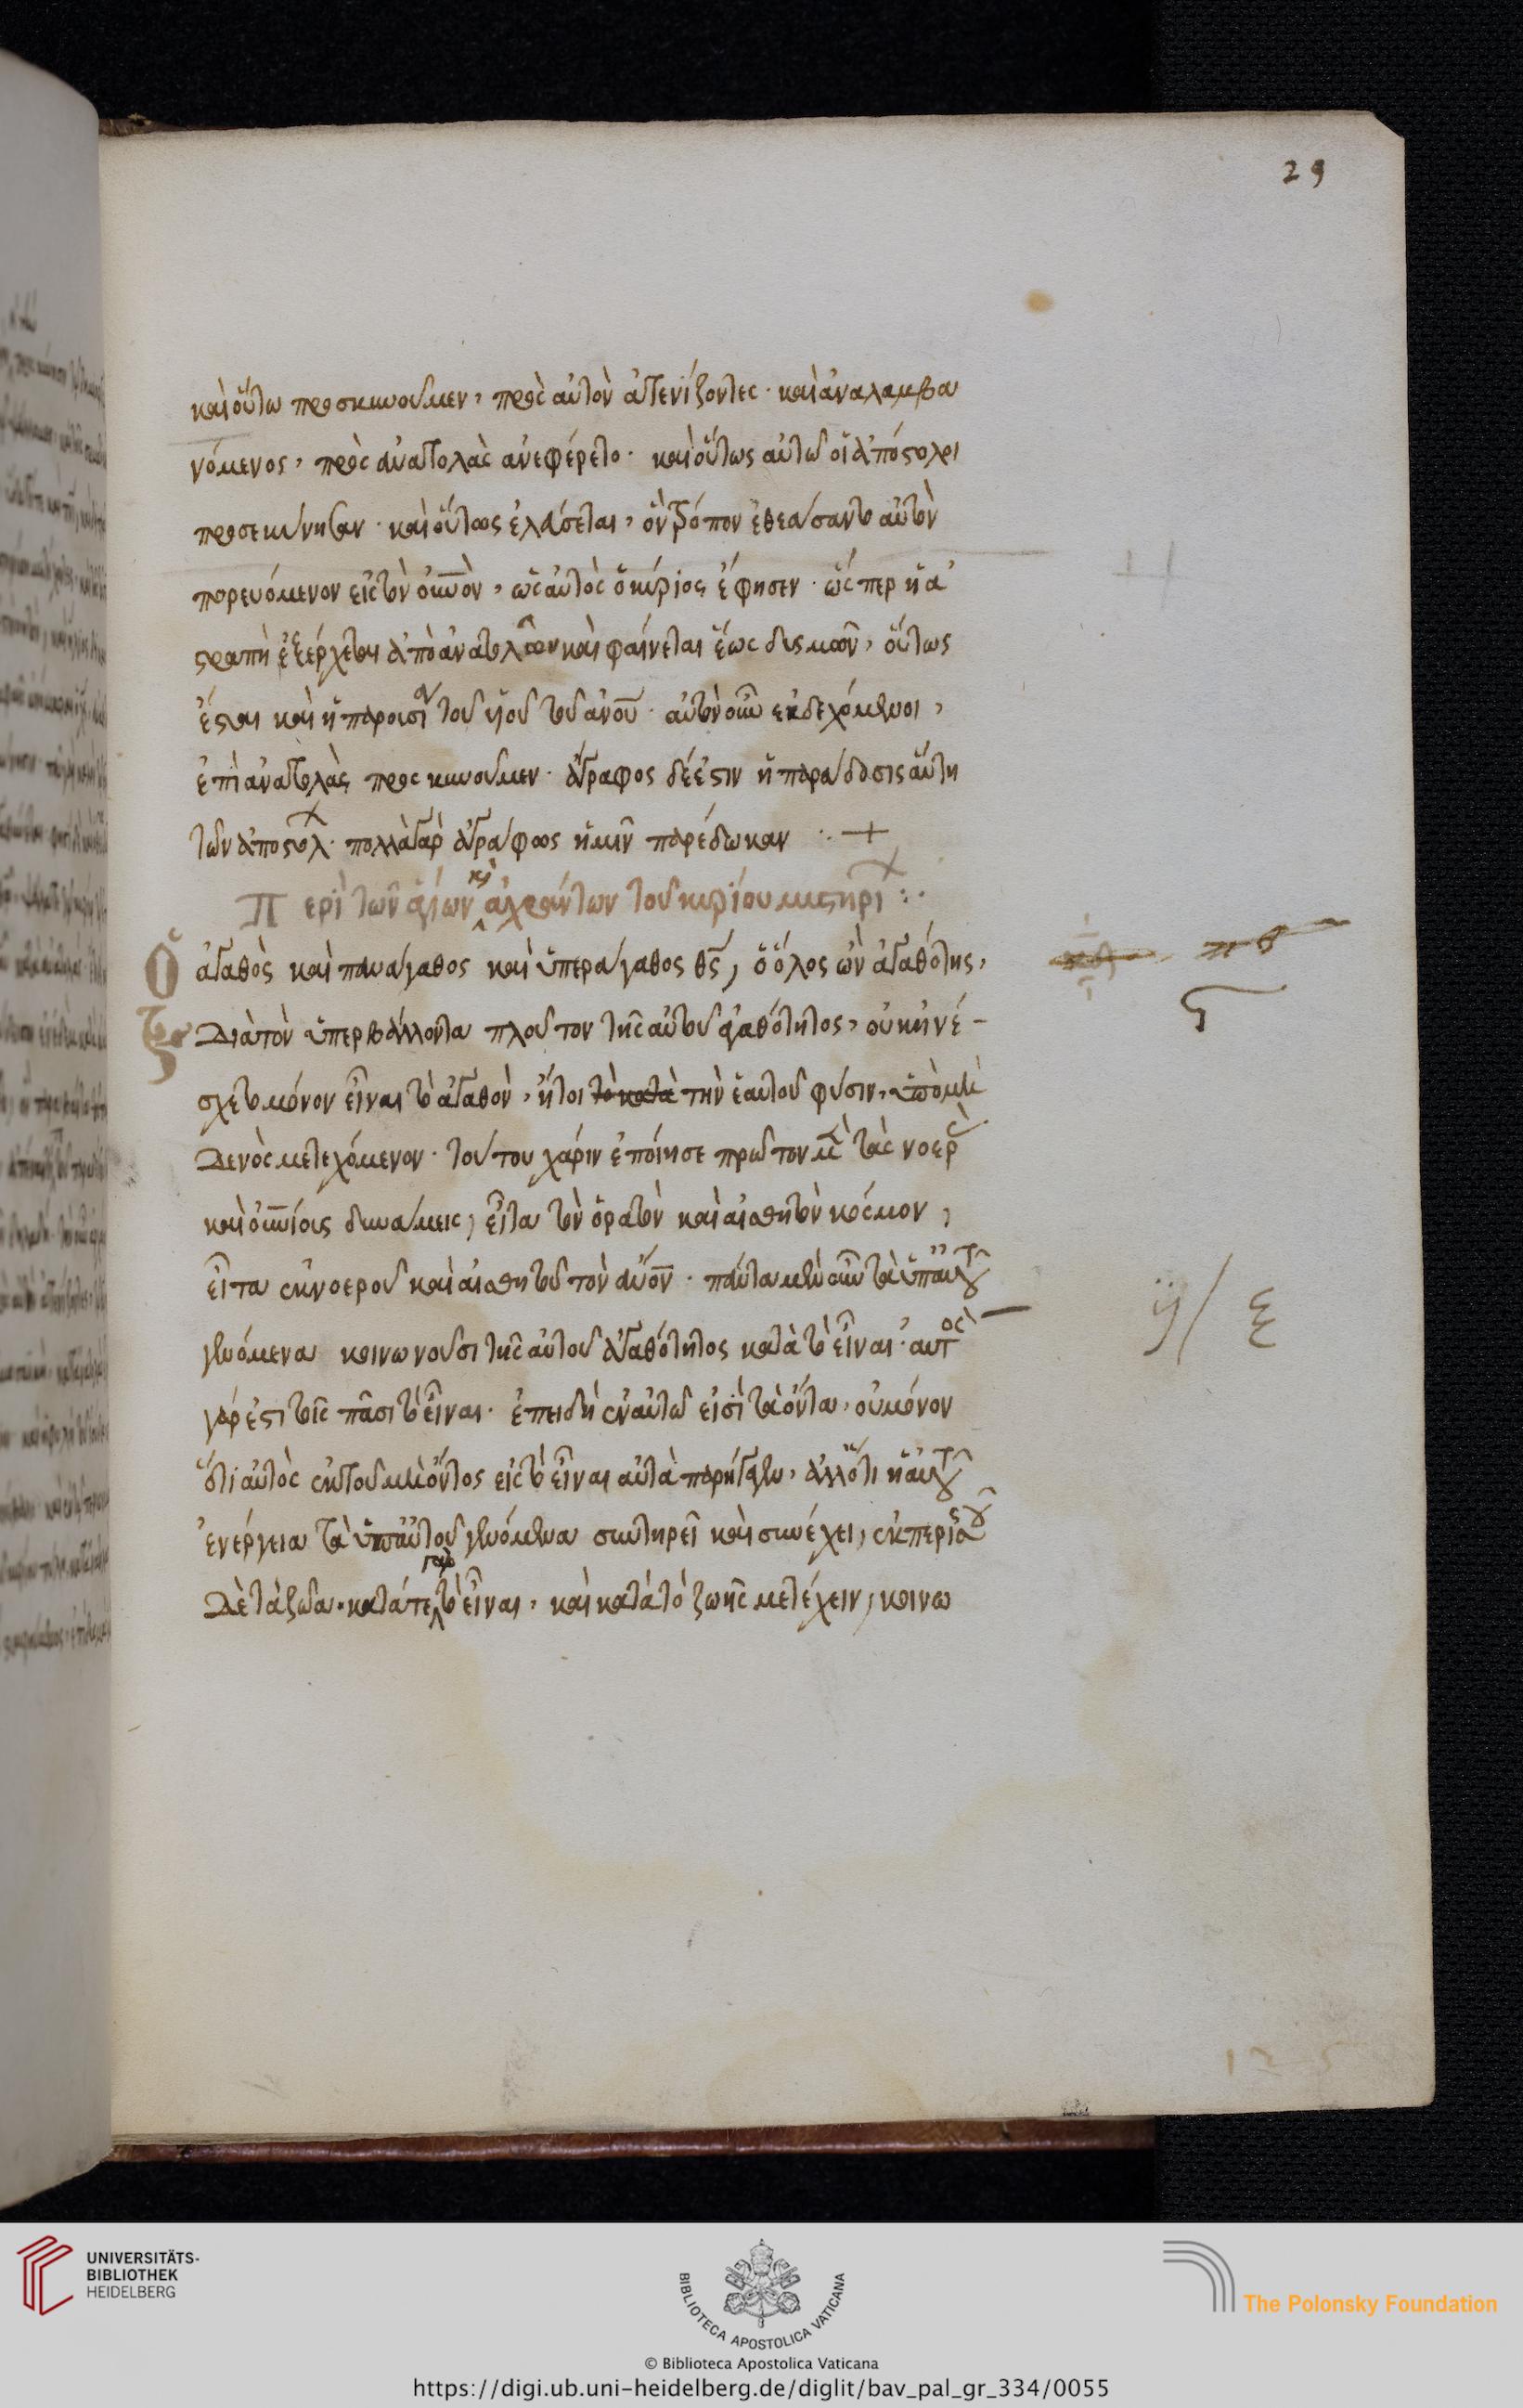 29
καὶ οὕτω προσκυνοῦμεν, πρὸς αὐτὸν ἀτενίζοντες· καὶ ἀναλαμβα
νόμενος, πρὸς ἀνατολὰς ἀνεφέρετο· καὶ οὕτως αὐτῶ οἱ ἀπόστολοι
προσεκύνησαν· καὶ οὕτως ἐλεύσεται, ὃν τρόπον ἐθεάσαντο αὐτὸν
πορευόμενον εἰς τὸν οὐνὸν, ὡς αὐτὸς ὁ κύριος ἔφησεν· ὥσπερ ἡ ἀ
στραπὴ ἐξέρχεται ἀπὸ ἀνατολῶν καὶ φαίνεται ἕως δυσμῶν, οὕτως
ἔσται καὶ ἡ παρουσία τοῦ υἱοῦ τοῦ ἀνοῦ· αὐτὸν οὖν ἐκδεχόμενοι,
ἐπὶ ἀνατολὰς προσκυνοῦμεν· ἄγραφος δέ ἐστιν ἡ παράδοσις αὕτη
τῶν ἀποστόλ· πολλὰ γὰρ ἀγράφως ἡμῖν παρέδωκαν :· +
Περὶ τῶν ἁγίων κὶ ἀχράντων τοῦ κυρίου μυστηρί :·
Ὁ ἀγαθὸς καὶ πανάγαθος καὶ ὑπεράγαθος θς, ὁ ὅλος ὢν ἀγαθότης,
διὰ τὸν ὑπερβάλλοντα πλοῦτον τῆς αὐτοῦ ἀγαθότητος, οὐκ ἠνέ-
σχετο μόνον εἶναι τὸ ἀγαθὸν, ἤτοι τὸ κατὰ τὴν ἑαυτοῦ φύσιν, ὑπὸ μὴ
δενὸς μετεχόμενον· τούτου χάριν ἐποίησε πρῶτον μὲ τὰς νοερὰς
καὶ οὐνίους δυνάμεις, εἶτα τὸν ὁρατὸν καὶ αἰσθητὸν κόσμον,
εἶτα ἐκ νοεροῦ καὶ αἰσθητοῦ τὸν ἄνον· πάντα μὲν οὖν τὰ ὑπ' αὐτοῦ
γενόμενα κοινωνοῦσι τῆς αὐτοῦ ἀγαθότητος κατὰ τὸ εἶναι· αὐτὸς
γάρ ἐστι τοῖς πᾶσι τὸ εἶναι· ἐπειδὴ ἐν αὐτῶ εἰσὶ τὰ ὄντα, οὐ μόνον
ὅτι αὐτὸς ἐκ τοῦ μὴ ὄντος εἰς τὸ εἶναι αὐτὰ παρήγαγεν, ἀλλ' ὅτι ἡ αὐτοῦ
ἐνέργεια τὰ ὑπ' αὐτοῦ γενόμενα συντηρεῖ καὶ συνέχει, ἐκ περισσοῦ
δὲ τὰ ζῶα· κατά τε γαρ τὸ εἶναι, καὶ κατὰ τὸ ζωῆς μετέχειν, κοινω
UNIVERSITÄTS-
BIBLIOTHEK
HEIDELBERG
BIBLIOTECA APOSTOLICA VATICANA
The Polonsky Foundation
© Biblioteca Apostolica Vaticana
https://digi.ub.uni-heidelberg.de/diglit/bav_pal_gr_334/0055